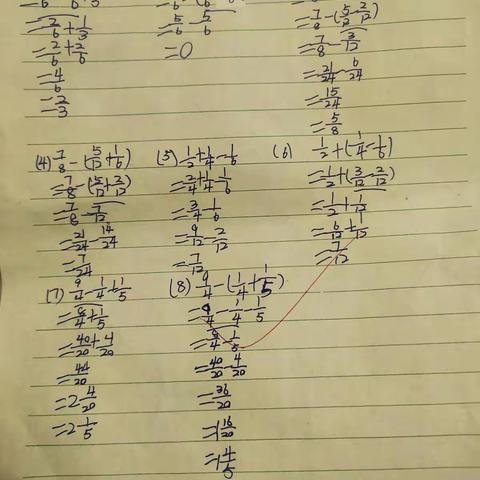 =2/6+1/3
=2/6+2/6
=4/6
=2/3
=5/6-5/6
=0
=7/8-(5/12-2/12)
=7/8-3/12
=21/24-6/24
=15/24
=5/8
(4) 7/8-(5/12+1/6)
=7/8-(5/12+2/12)
=7/8-7/12
=21/24-14/24
=7/24
(5) 1/2+1/4-1/6
=2/4+1/4-1/6
=3/4-1/6
=9/12-2/12
=7/12
(6) 1/2+(1/4-1/6)
=1/2+(3/12-2/12)
=1/2+1/12
=6/12+1/12
=7/12
(7) 9/4-1/4+1/5
=8/4+1/5
=40/20+4/20
=44/20
=2 4/20
=2 1/5
(8) 9/4-(1/4+1/5)
=9/4-1/4-1/5
=8/4-1/5
=40/20-4/20
=36/20
=1 16/20
=1 4/5